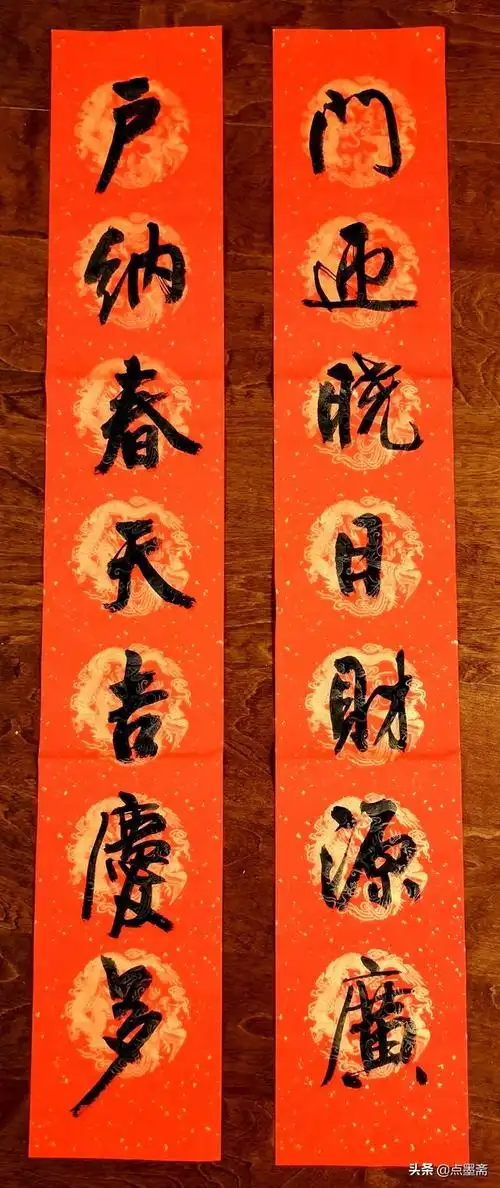 門迎曉日財源廣
户纳春天吉慶多
头条 @点墨斋